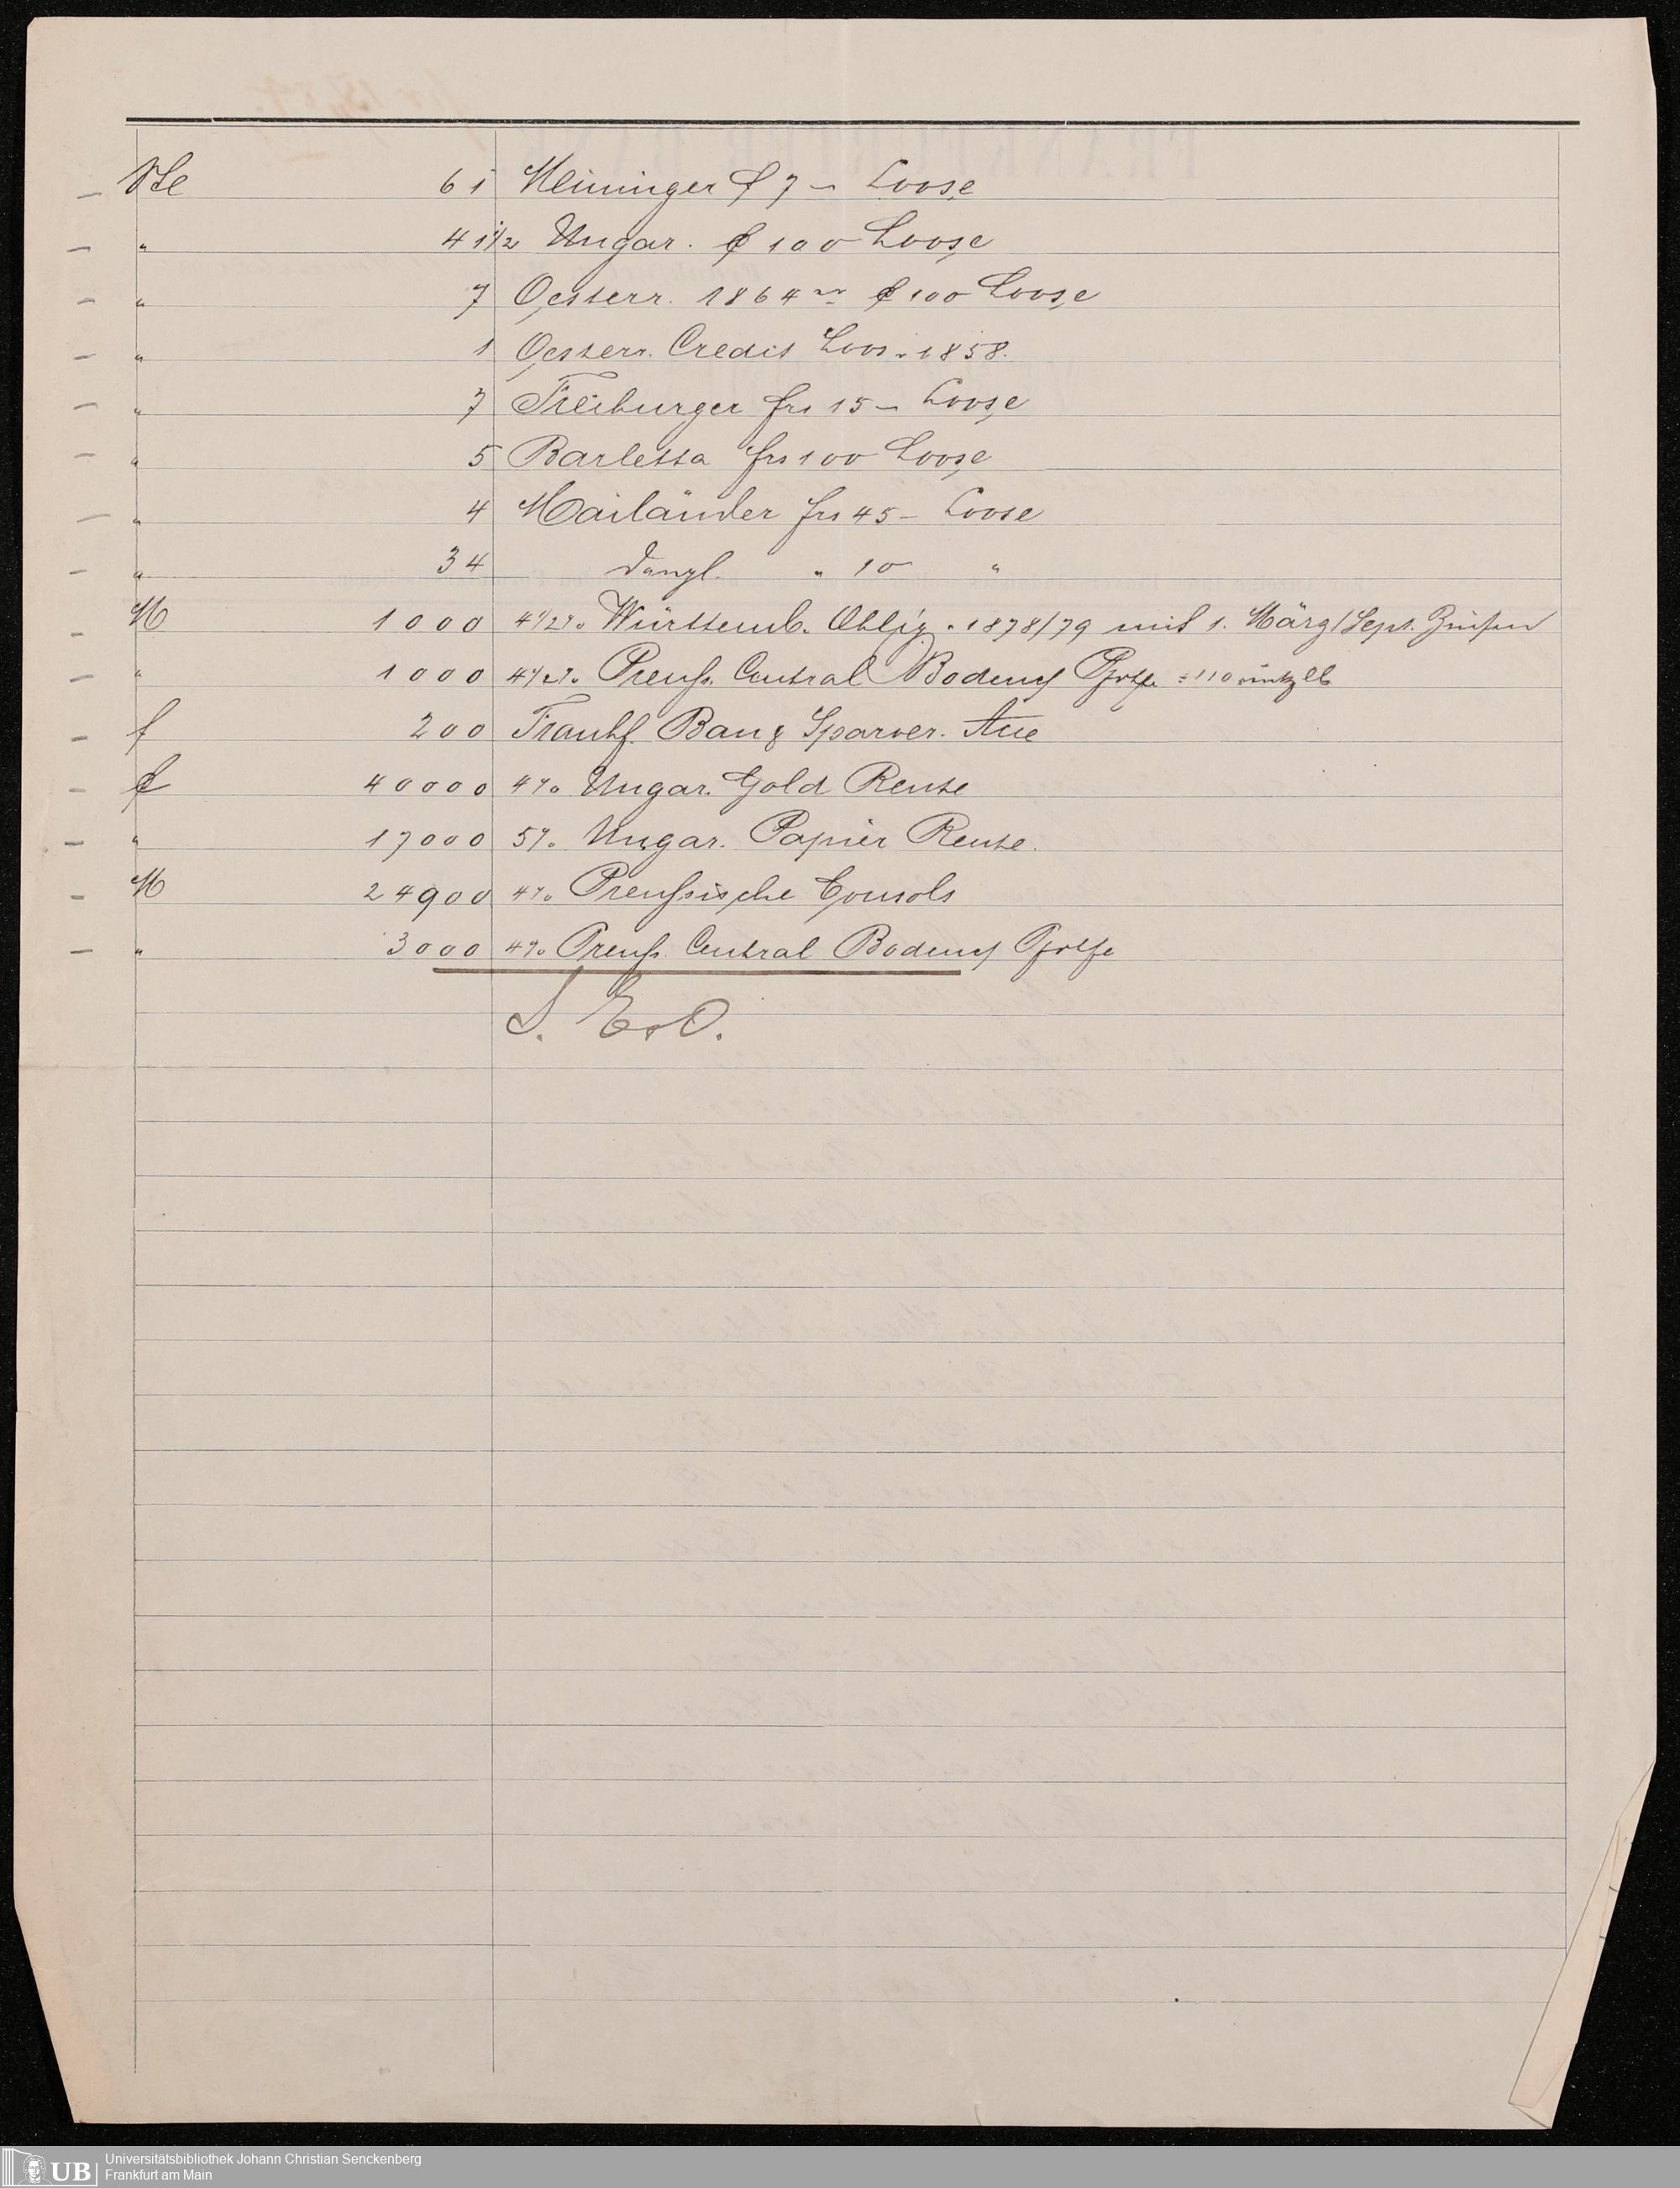 – Ste 61 Meininger f 7 – Loose
– " 41 1/2 Ungar. f 100 Loose
– " 7 Oesterr. 1864er f 100 Loose
– " 1 Oesterr. Credit Loos. 1858.
– " 7 Freiburger frs 15 – Loose
– " 5 Barletta frs 100 Loose
– " 4 Mailänder frs 45 – Loose
– " 34 dergl. " 10 "
– M 1000 4 1/2% Württemb. Oblig. 1878/79 mit 1. März/Sept. Zinsen
– " 1000 4 1/2% Preuß. Central Bodencr Pfdbfe
– f 200 Frankf. Bau & Sparver. Aue
– f 40000 4% Ungar. Gold Rente
– " 17000 5% Ungar. Papier Rente.
– M 24900 4% Preußische Consols
– " 3000 4% Preuß. Central Bodencr Pfdbfe
S. E & O.
UB Universitätsbibliothek Johann Christian Senckenberg
Frankfurt am Main